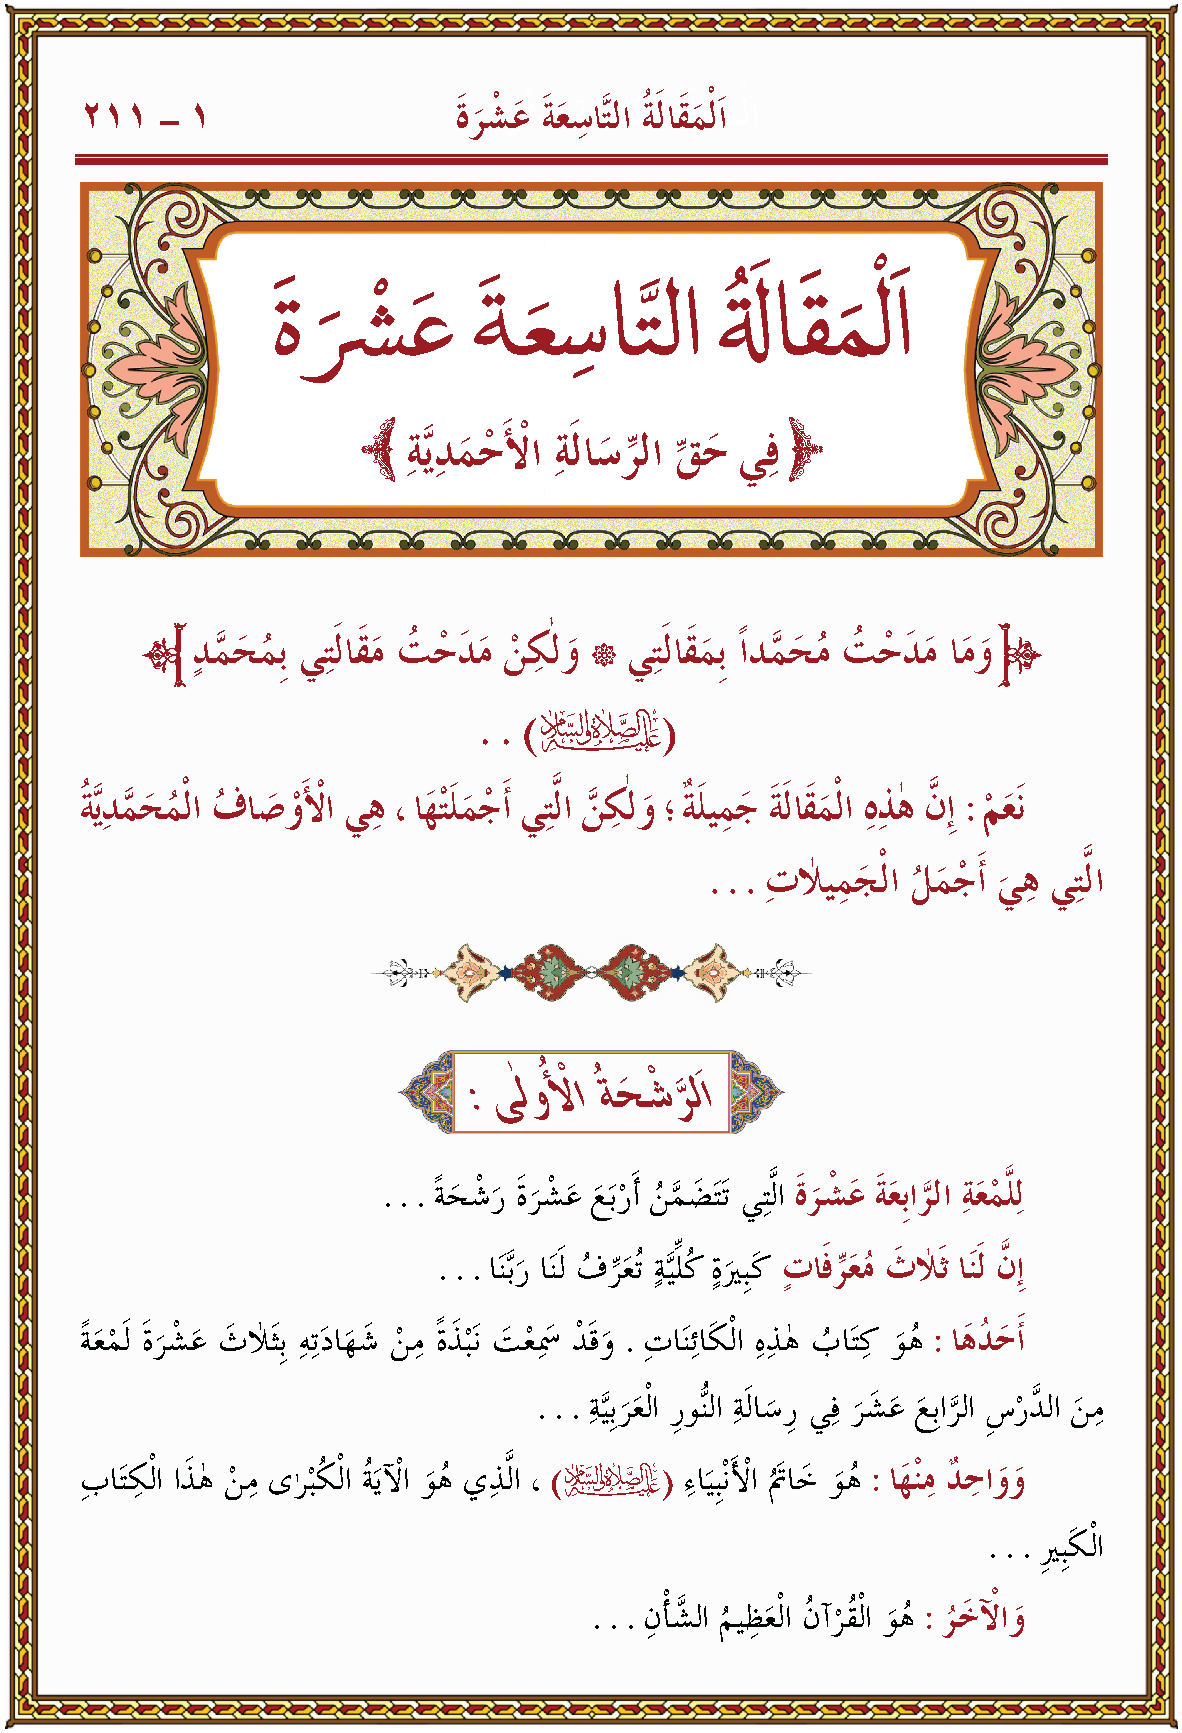 اَلْمَقَالَةُ التَّاسِعَةَ عَشْرَةَ ١ – ٢١١
اَلْمَقَالَةُ التَّاسِعَةَ عَشْرَةَ
﴿ فِي حَقِّ الرِّسَالَةِ الْأَحْمَدِيَّةِ ﴾
وَمَا مَدَحْتُ مُحَمَّداً بِمَقَالَتِي ۞ وَلٰكِنْ مَدَحْتُ مَقَالَتِي بِمُحَمَّدٍ
(عَلَيْهِ الصَّلَاةُ وَالسَّلَامُ) . .
نَعَمْ : إِنَّ هٰذِهِ الْمَقَالَةَ جَمِيلَةٌ ؛ وَلٰكِنَّ الَّتِي أَجْمَلَتْهَا ، هِي الْأَوْصَافُ الْمُحَمَّدِيَّةُ
الَّتِي هِيَ أَجْمَلُ الْجَمِيلَاتِ . . .
اَلرَّشْحَةُ الْأُولٰى :
لِلَّمْعَةِ الرَّابِعَةَ عَشْرَةَ الَّتِي تَتَضَمَّنُ أَرْبَعَ عَشْرَةَ رَشْحَةً . . .
إِنَّ لَنَا ثَلٰاثَ مُعَرِّفَاتٍ كَبِيرَةٍ كُلِّيَّةٍ تُعَرِّفُ لَنَا رَبَّنَا . . .
أَحَدُهَا : هُوَ كِتَابُ هٰذِهِ الْكَائِنَاتِ . وَقَدْ سَمِعْتَ نَبْذَةً مِنْ شَهَادَتِهِ بِثَلٰاثَ عَشْرَةَ لَمْعَةً
مِنَ الدَّرْسِ الرَّابِعَ عَشَرَ فِي رِسَالَةِ النُّورِ الْعَرَبِيَّةِ . . .
وَوَاحِدٌ مِنْهَا : هُوَ خَاتَمُ الْأَنْبِيَاءِ (عَلَيْهِ الصَّلَاةُ وَالسَّلَامُ) ، الَّذِي هُوَ الْآيَةُ الْكُبْرٰى مِنْ هٰذَا الْكِتَابِ
الْكَبِيرِ . . .
وَالْآخَرُ : هُوَ الْقُرْآنُ الْعَظِيمُ الشَّأْنِ . . .